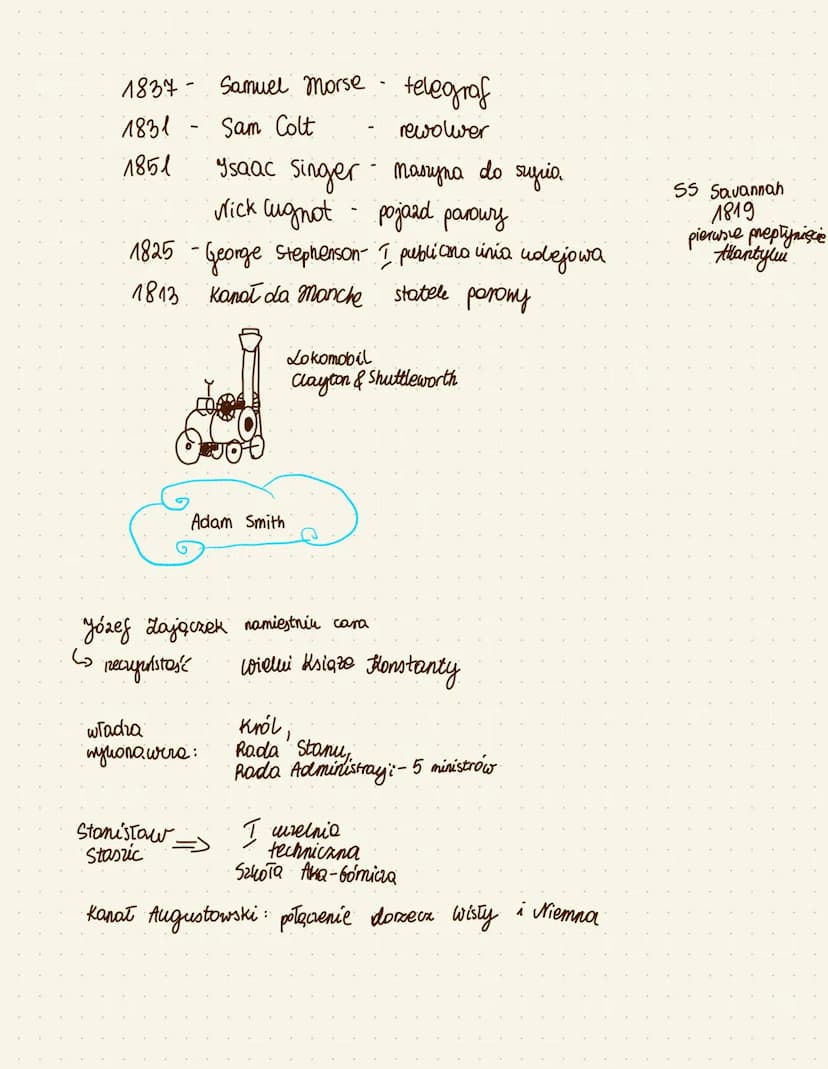 1837 - Samuel Morse - telegraf
1831 - Sam Colt - rewolwer
1851 Isaac Singer - maszyna do szycia
Nick Cugnot - pojazd parowy
1825 - George Stephenson - I publiczna linia kolejowa
1813 Kanał da Manche statek parowy
SS Savannah
1819
pierwsze przepłynięcie
Atlantyku
Lokomobil
Clayton & Shuttleworth
Adam Smith
Józef Zajączek namiestnik cara
↳ rzeczywistość Wielki Książe Konstanty
władza
wykonawcza:
Król,
Rada Stanu,
Rada Administracyj: - 5 ministrów
Stanisław
Staszic ⇒
I uczelnia
techniczna
Szkoła Aka-Górnicza
Kanał Augustowski: połączenie dorzecza Wisły i Niemna